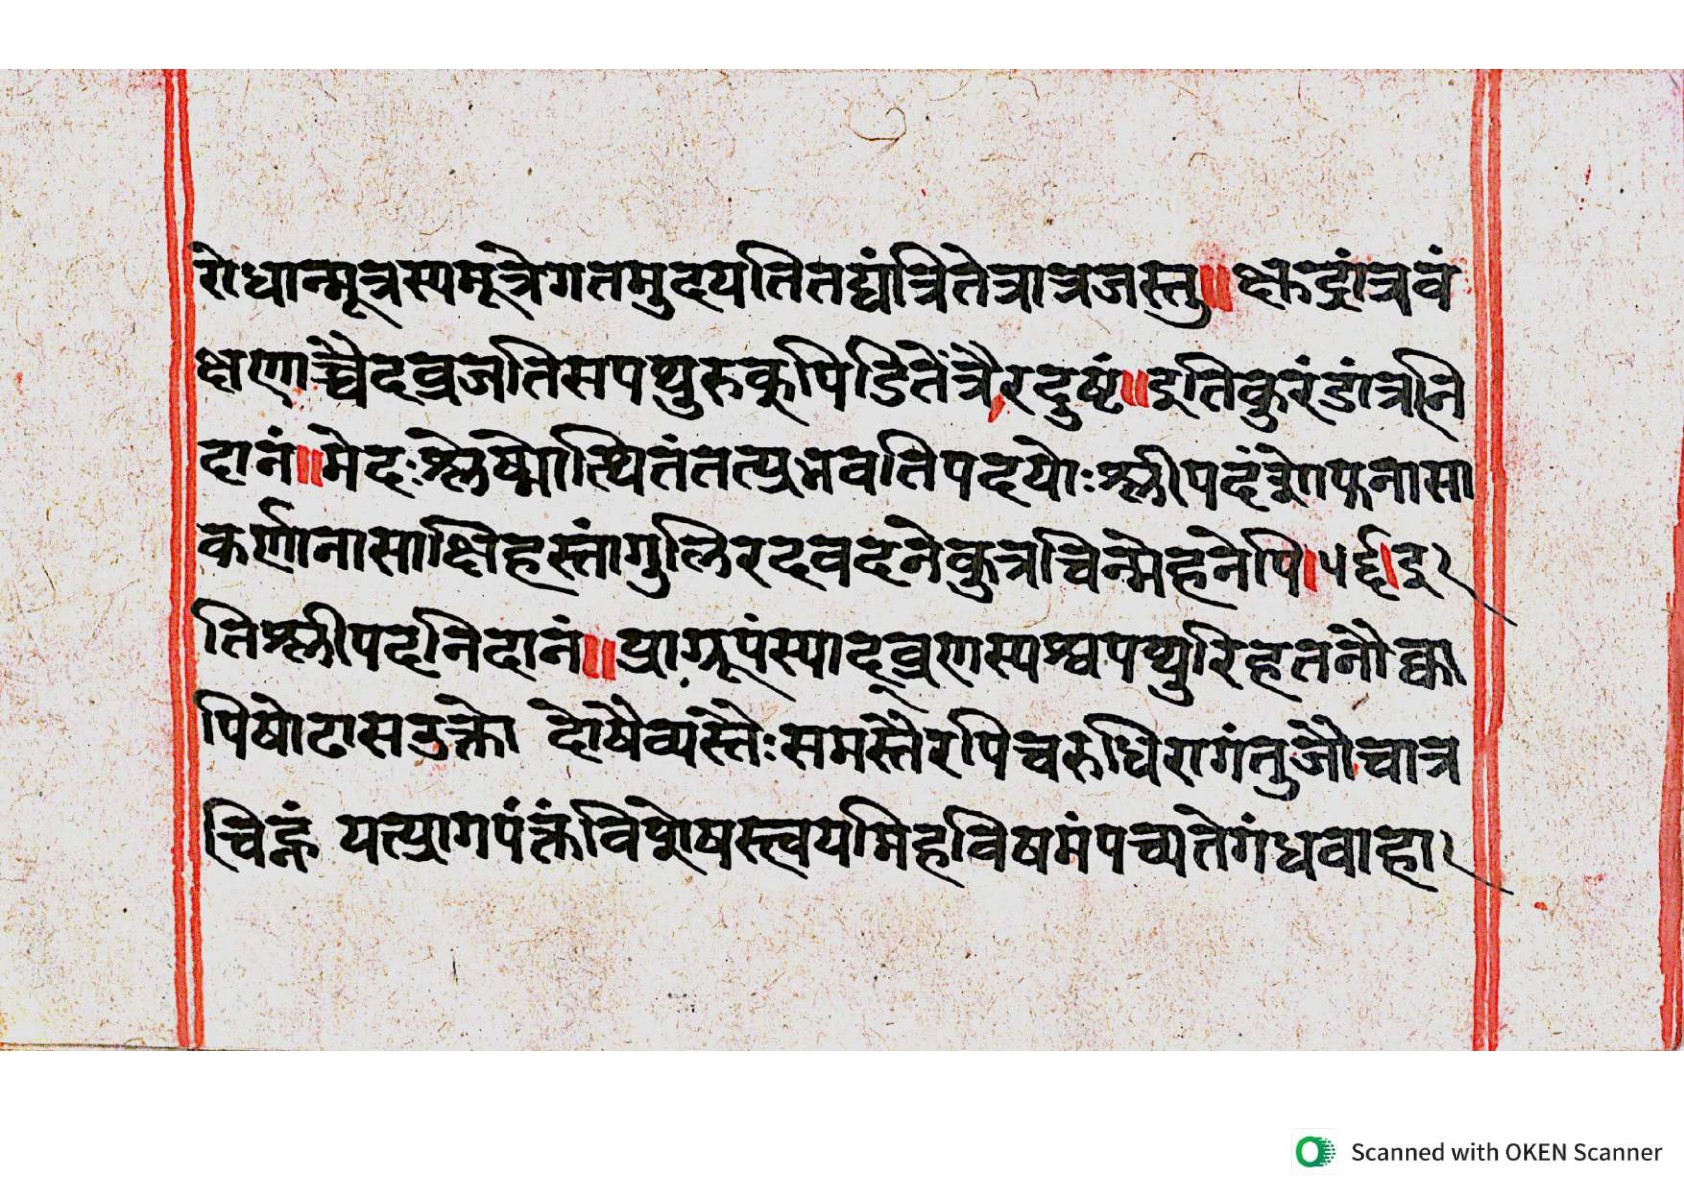 रोधान्मूत्रस्यमूत्रेगतमुदयतितद्यंत्रितेत्रात्रजस्तु॥क्षुद्रांत्रवं
क्षणाच्चैदव्रजतिसपथुरुकूपिडितेंत्रैरदुष्टं॥इतिकुरंडांत्रनि
दानं॥मेदःश्लेष्मोत्थितंतत्प्रभवतिपदयोःश्लीपदं
कर्णनासाक्षिहस्तांगुलिरदवदनेकुत्रचिन्मेहनेपि।५६।इ
तिश्लीपदनिदानं॥प्राग्रूपंस्याद्व्रणस्यश्वपथुरिहतनौक्वा
पिषोढासउक्तो दोषैर्व्यस्तैःसमस्तैरपिचरुधिरागंतुजौचात्र
चिह्नं यत्प्रागपंक्तंविशेषस्त्वयमिहविषमंपच्यतेगंधवाहा
Scanned with OKEN Scanner